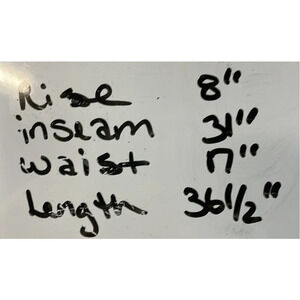 Rise 8"
inseam 31"
waist 17"
Length 36 1/2"